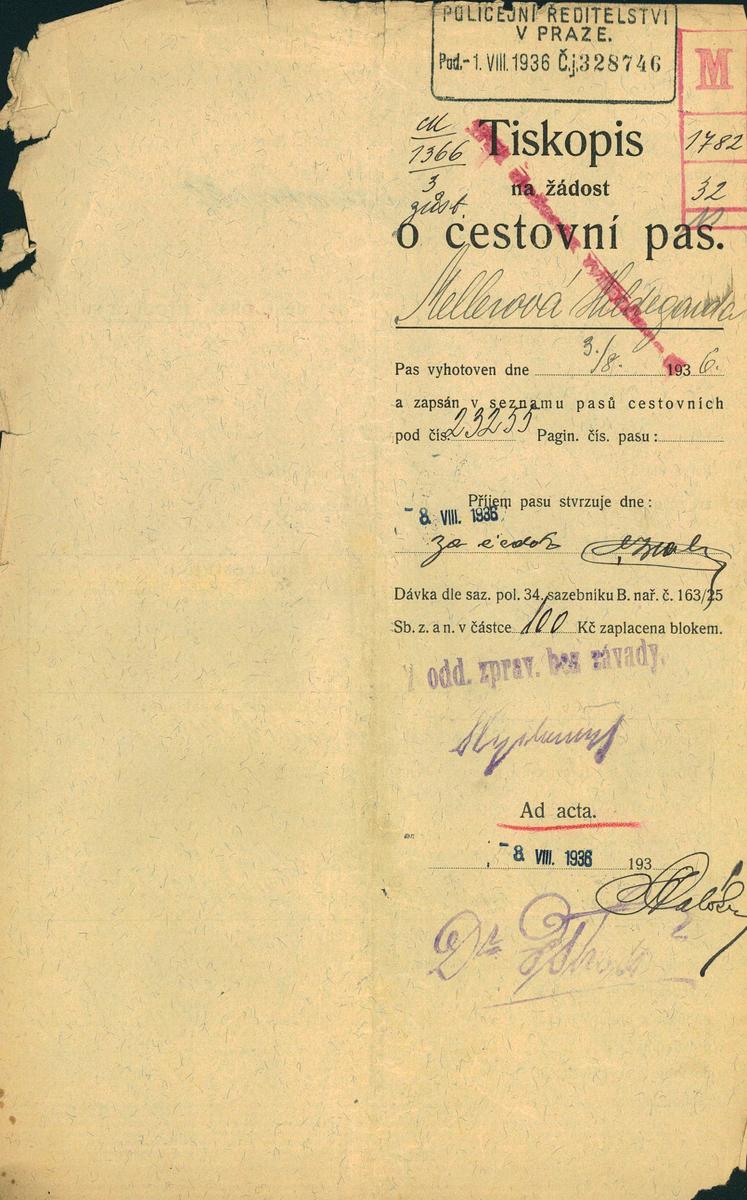 POLICEJNÍ ŘEDITELSTVÍ
V PRAZE.
Pod.- 1. VIII. 1936 Č.j. 328746
M
1782
32
M
1366
3
zůst.
Tiskopis
na žádost
o cestovní pas.
Mellerová Hildegarda
Pas vyhotoven dne 3./8. 1936.
a zapsán v seznamu pasů cestovních
pod čís. 23255 Pagin. čís. pasu:
Příjem pasu stvrzuje dne:
- 8. VIII. 1936
za
Dávka dle saz. pol. 34. sazebníku B. nař. č. 163/25
Sb. z. a n. v částce 100 Kč zaplacena blokem.
odd. zprav. bez závady.
Ad acta.
- 8. VIII. 1936 193
Dr